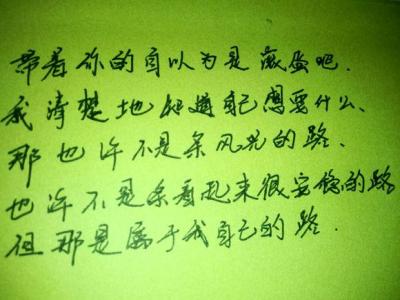 带着你的自以为是滚蛋吧.
我清楚地知道自己想要什么、
那也许不是条风光的路.
也许不是条看起来很安稳的路
但那是属于我自己的路.